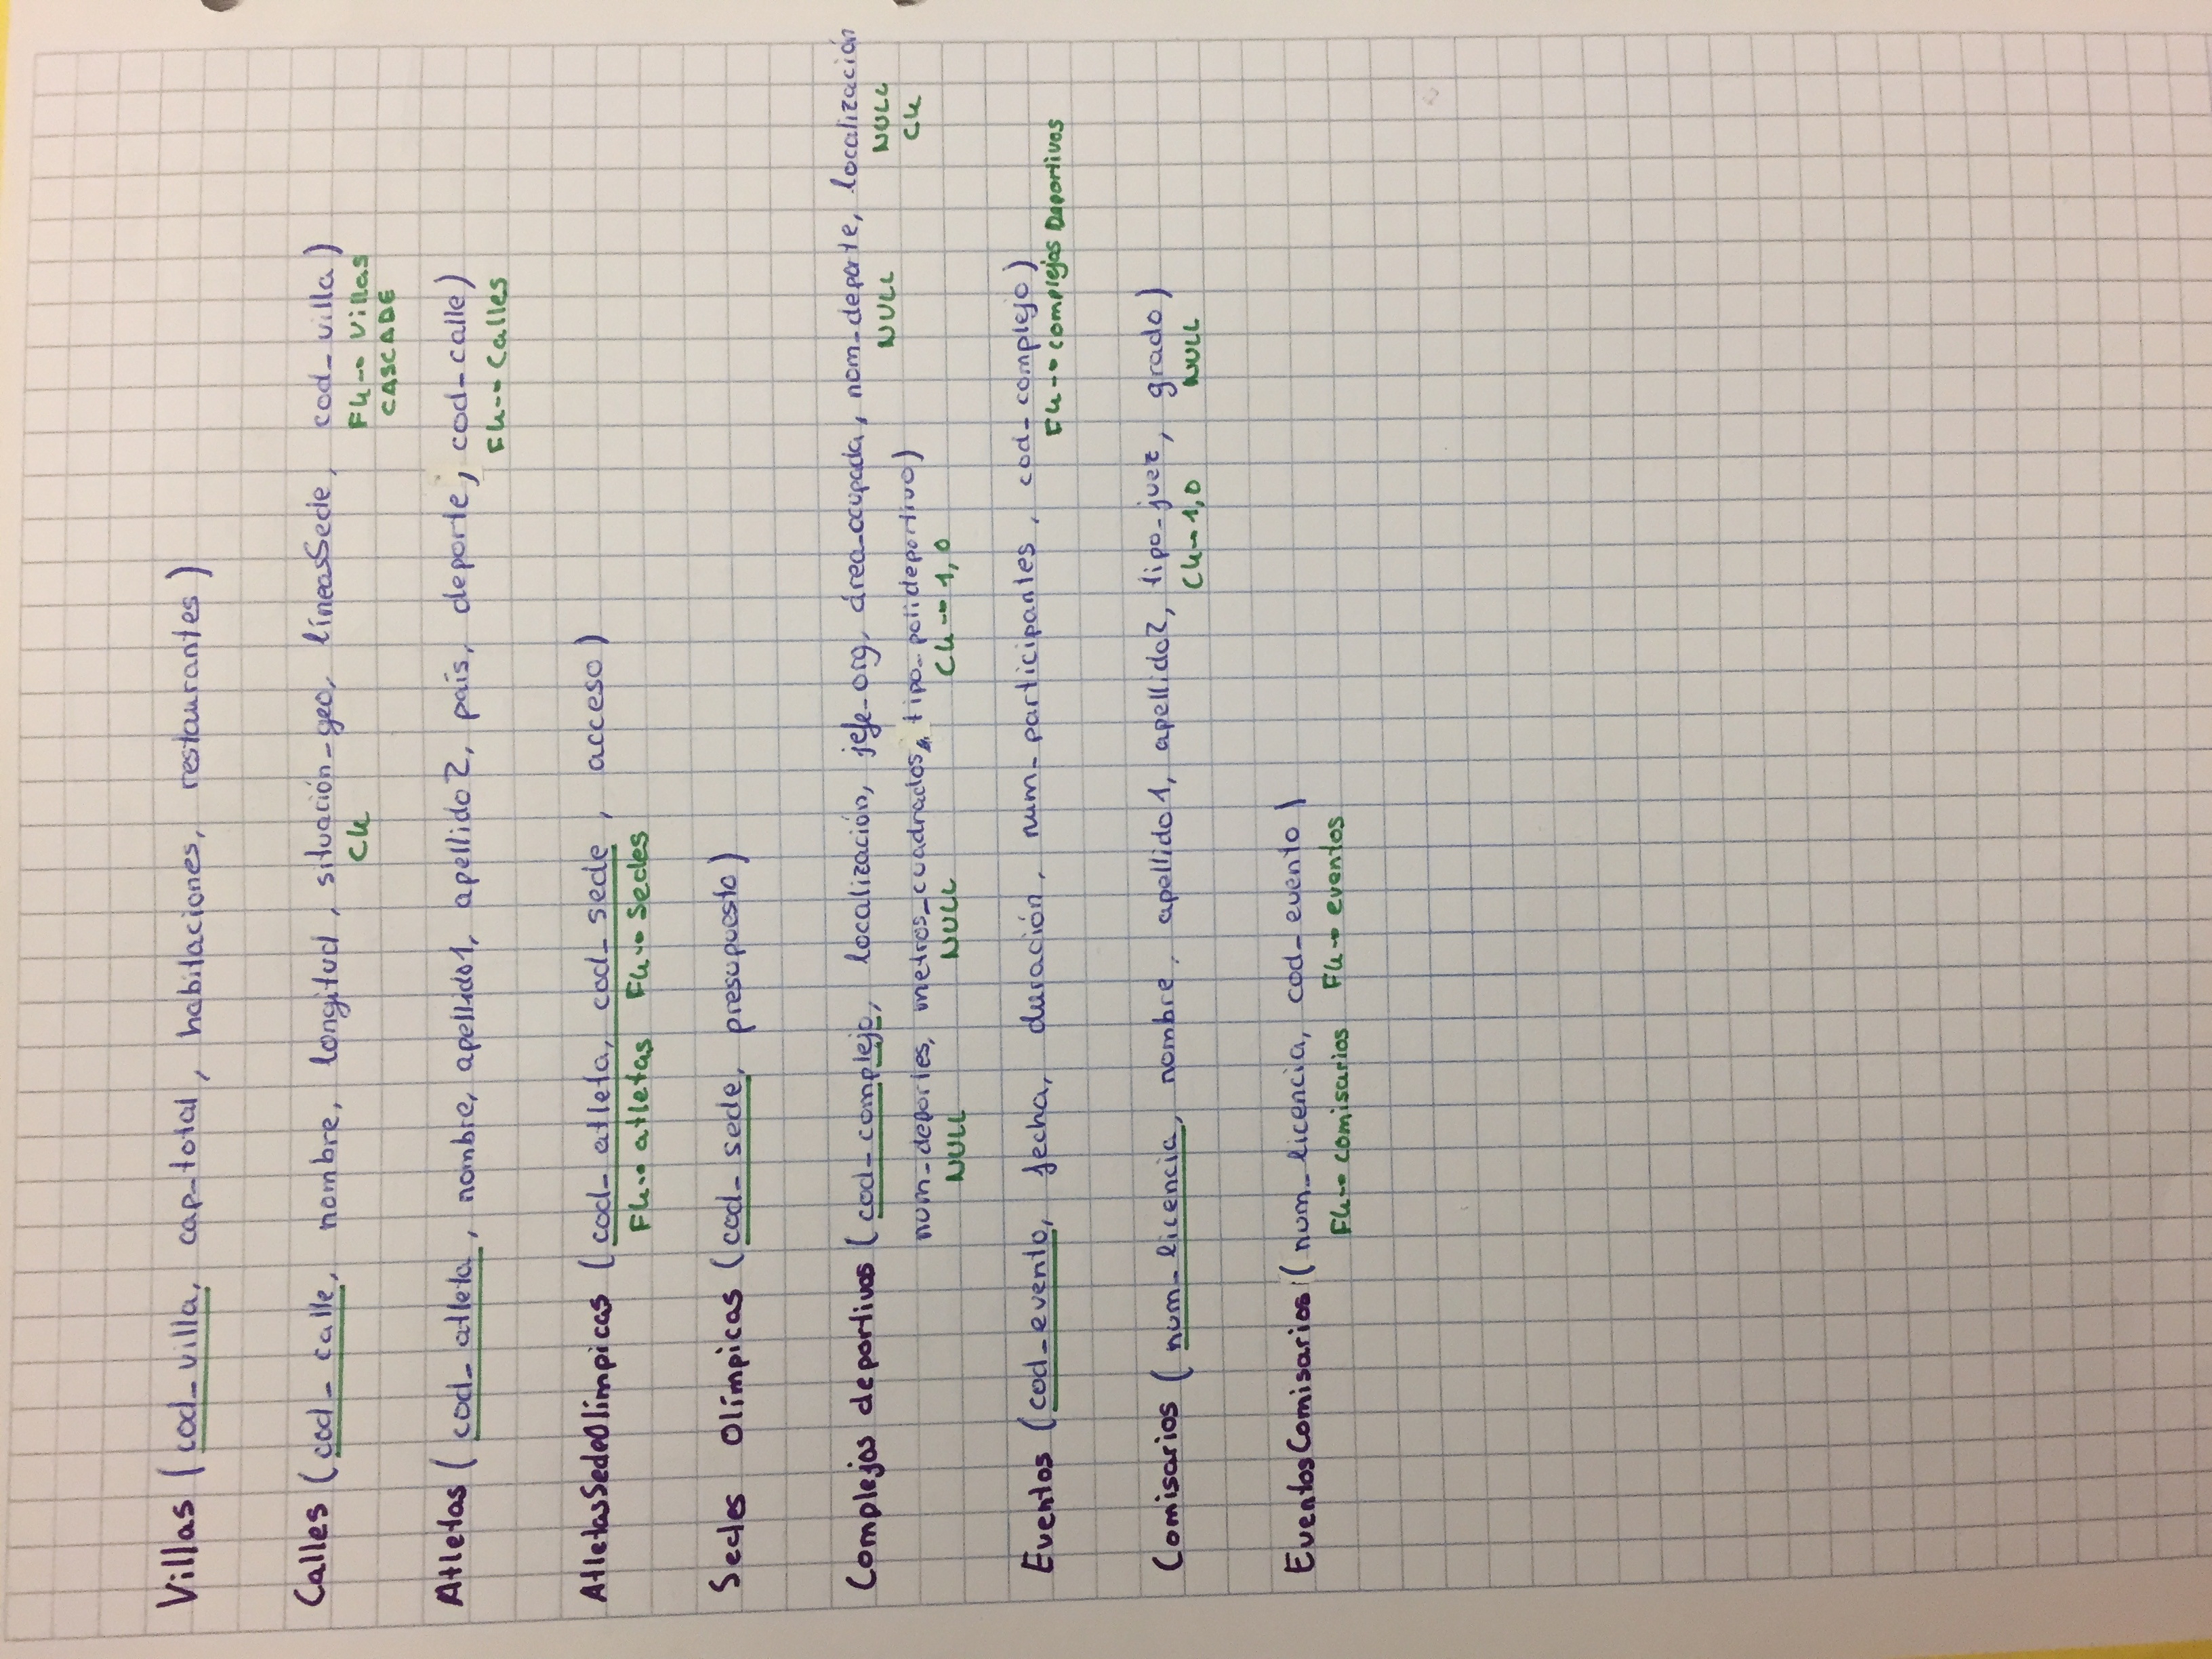 Villas (cod_villa, cap_total, habitaciones, restaurantes)
Calles (cod_calle, nombre, longitud, situación_geo, líneasSede, cod_villa)
CK FK→ Villas
CASCADE
Atletas (cod_atleta, nombre, apellido1, apellido2, país, deporte, cod_calle)
FK→ Calles
AtletasSedeOlímpicas (cod_atleta, cod_sede, acceso)
FK→ atletas FK→ Sedes
Sedes Olímpicas (cod_sede, presupuesto)
Complejos deportivos (cod_complejo, localización, jefe_org, área_ocupada, nom_deporte, localización
NULL NULL
CK
num_deportes, metros_cuadrados, tipo_polideportivo)
NULL NULL CK→ 1,0
Eventos (cod_evento, fecha, duración, num_participantes, cod_complejo)
FK→ complejos Deportivos
Comisarios (num_licencia, nombre, apellido1, apellido2, tipo_juez, grado)
CK→1,0 NULL
EventosComisarios (num_licencia, cod_evento)
FK→ comisarios FK→ eventos